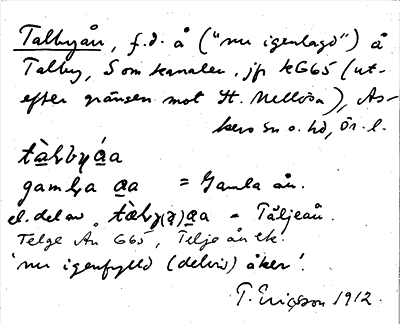 Talbyån, f.d. å ("nu igenlagd") å
Talby, Som kanalen, jfr KG65 (ut-
efter gränsen mot St. Mellösa), As-
kers sn o. hd, Ör. l.
tàLbyåa
gamLa aa = Gamla ån.
el. del av = Täljeån.
Telge Å G65, Telje ån ek.
'nu igenfylld (delvis) åker'.
T. Ericsson 1912.